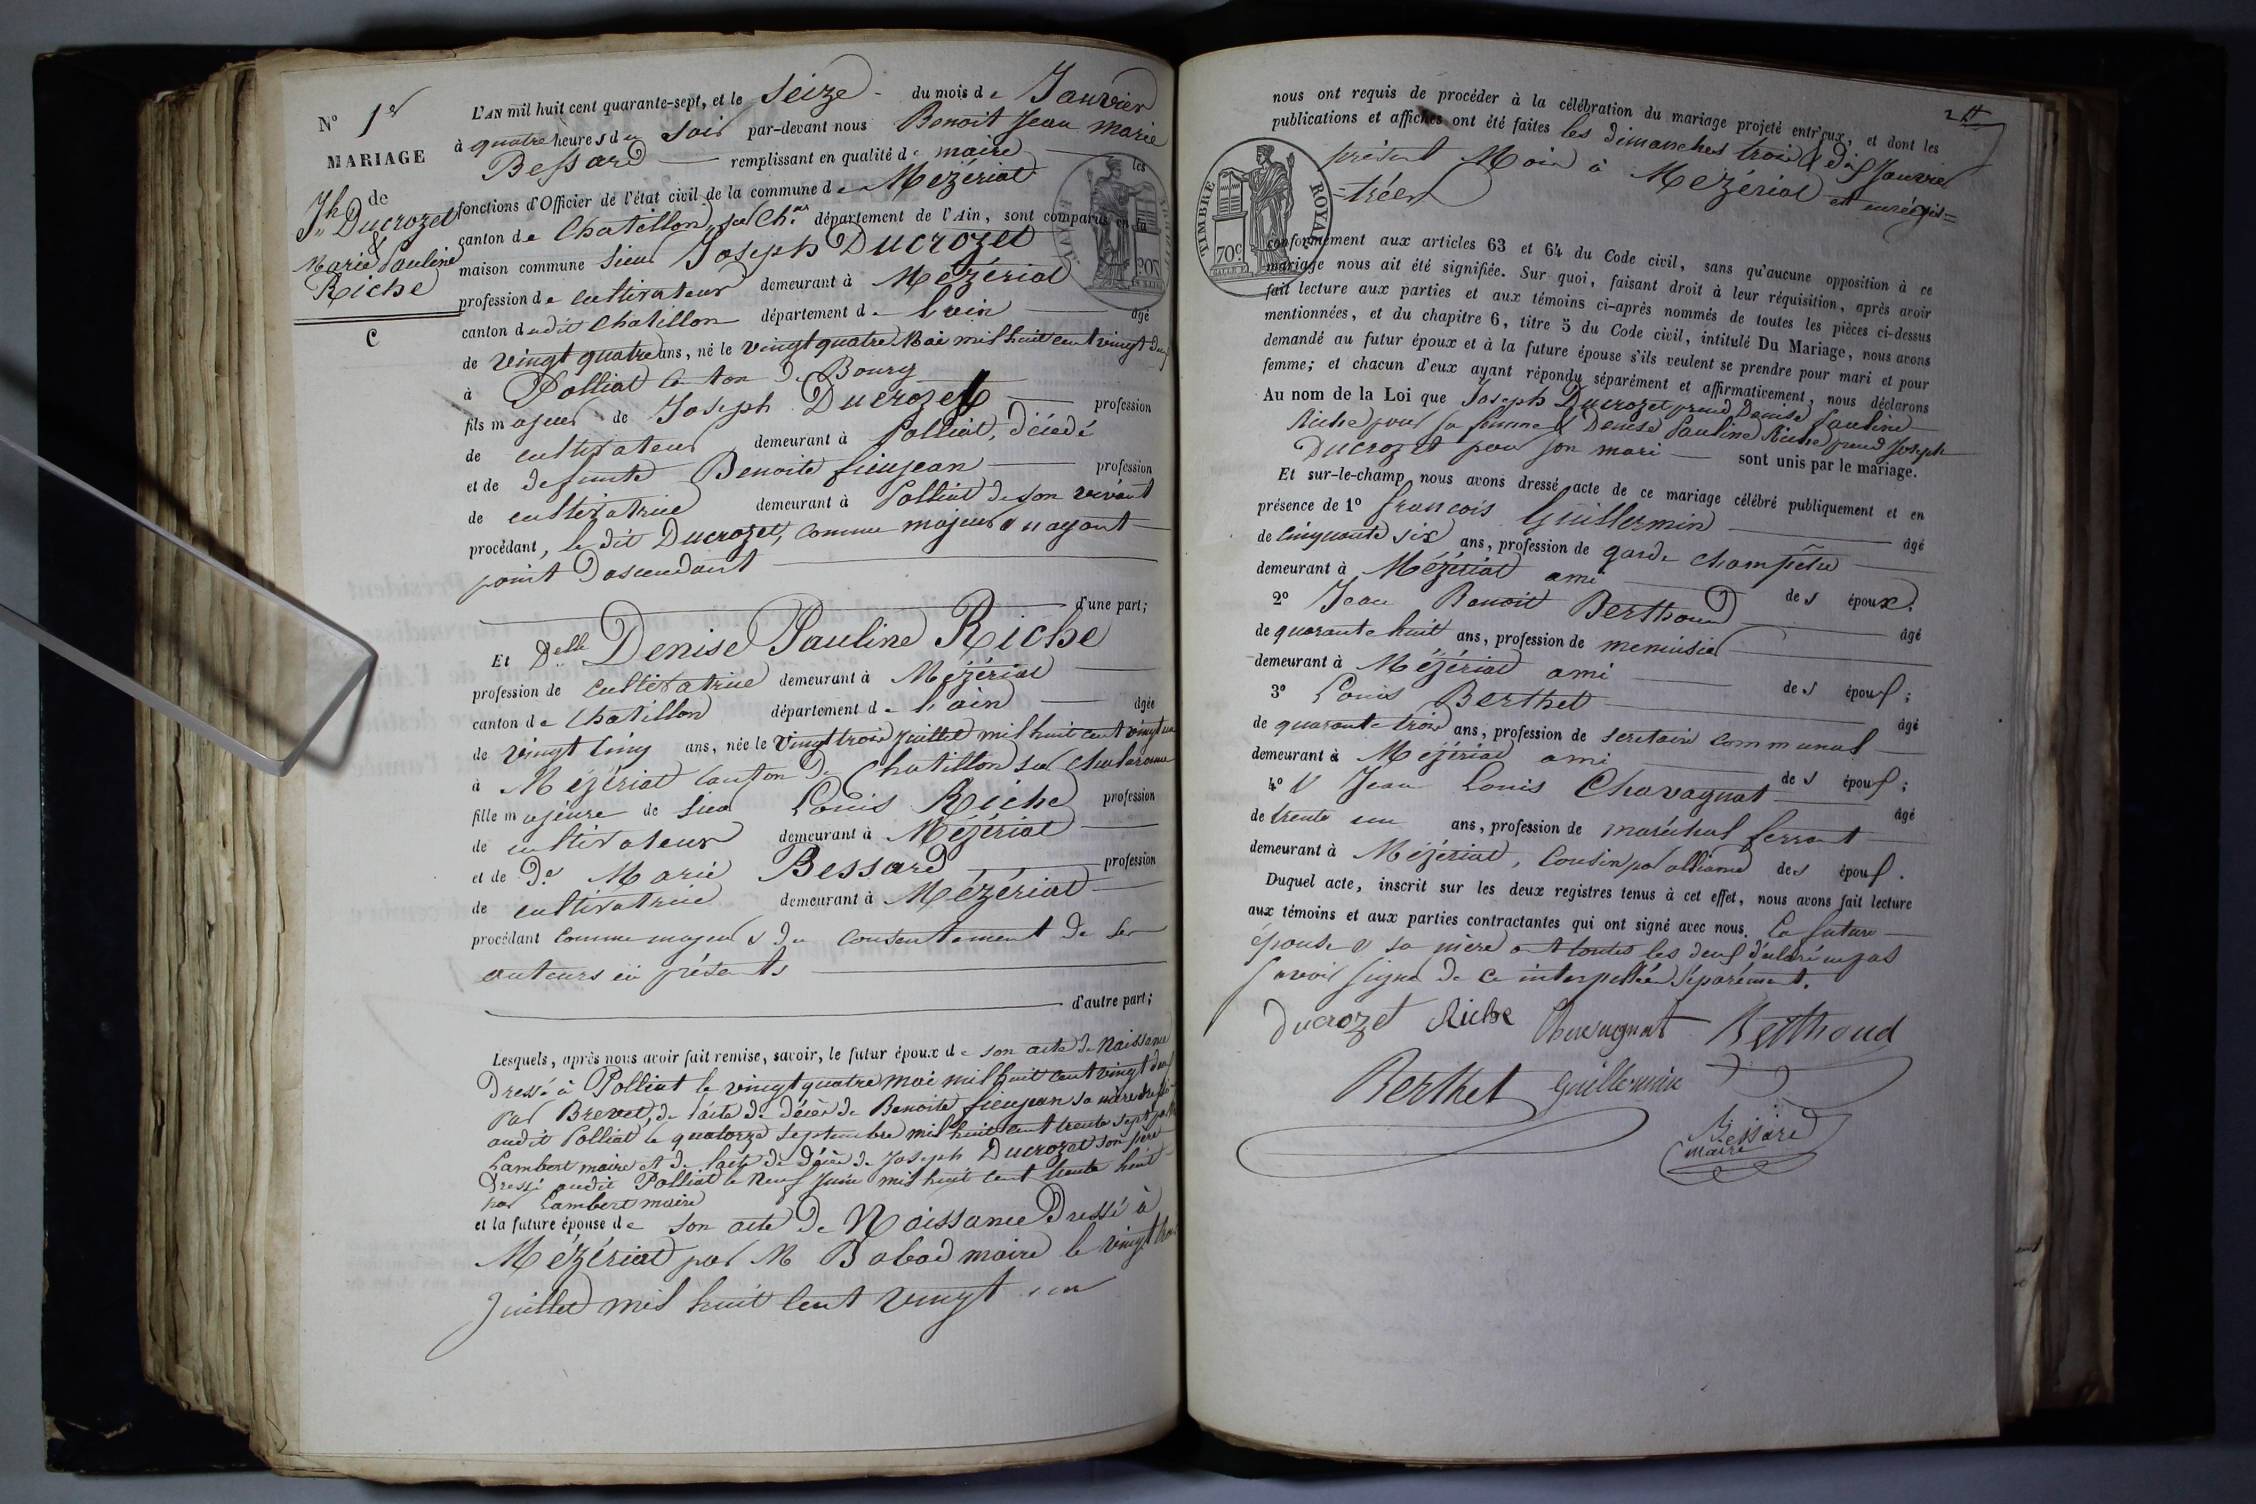 N° 1er
MARIAGE
de
Jh Ducrozet
&
Marie Pauline
Riche
C
L'AN mil huit cent quarante-sept, et le seize du mois de Janvier
à quatre heures du soir par-devant nous Benoit Jean Marie
Bessard remplissant en qualité de maire les
fonctions d'Officier de l'état civil de la commune de Mézériat
canton de Chatillon sur Ch.ne département de l'Ain, sont comparus en la
maison commune sieur Joseph Ducrozet
profession de cultivateur demeurant à Mézériat
canton dudit Chatillon département de l'ain âgé
de vingt quatre ans, né le vingt quatre Mai mil huit cent vingt deux
à Polliat canton de Bourg
fils majeur de Joseph Ducrozet profession
de cultivateur demeurant à Polliat, décédé
et de defunte Benoite fieujean profession
de cultivatrice demeurant à Polliat de son vivant
procédant, le dit Ducrozet, comme majeur n'ayant
point d'ascendant
d'une part;
Et Delle Denise Pauline Riche
profession de cultivatrice demeurant à Mézériat
canton de Chatillon département de l'ain âgée
de vingt cinq ans, née le vingt trois juillet mil huit cent vingt un
à Mézériat canton de Chatillon sur Chalaronne
fille majeure de sieur Louis Riche profession
de cultivateur demeurant à Mézériat
et de De Marie Bessard profession
de cultivatrice demeurant à Mézériat
procédant comme majeure du consentement de ses
auteurs ici présents
d'autre part;
Lesquels, après nous avoir fait remise, savoir, le futur époux de son acte de Naissance
Dressé à Polliat le vingt quatre mai mil huit cent vingt deux
par Brevet, de l'acte de décès de Benoite fieujean sa mère dressé
audit Polliat le quatorze septembre mil huit cent trente sept par
Lambert maire et de l'acte de décès de Joseph Ducrozet son père
Dressé audit Polliat le neuf Juin mil huit cent trente huit
par Lambert maire
et la future épouse de son acte de Naissance Dressé à
Mézériat par M Babad maire le vingt trois
Juillet mil huit cent vingt un
nous ont requis de procéder à la célébration du mariage projeté entr'eux, et dont les
publications et affiches ont été faites les dimanches trois & dix Janvier
présent Mois à Mézériat et enrégis=
=trées
TIMBRE ROYAL
70c
conformément aux articles 63 et 64 du Code civil, sans qu'aucune opposition à ce
mariage nous ait été signifiée. Sur quoi, faisant droit à leur réquisition, après avoir
fait lecture aux parties et aux témoins ci-après nommés de toutes les pièces ci-dessus
mentionnées, et du chapitre 6, titre 5 du Code civil, intitulé Du Mariage, nous avons
demandé au futur époux et à la future épouse s'ils veulent se prendre pour mari et pour
femme; et chacun d'eux ayant répondu séparément et affirmativement, nous déclarons
Au nom de la Loi que Joseph Ducrozet prend Denise Pauline
Riche pour sa femme & Denise Pauline Riche prend Joseph
Ducrozet pour son mari sont unis par le mariage.
Et sur-le-champ nous avons dressé acte de ce mariage célébré publiquement et en
présence de 1° françois Guillermin âgé
de cinquante six ans, profession de garde champêtre
demeurant à Mézériat ami des époux.
2° Jean Benoit Berthoud âgé
de quarante huit ans, profession de menuisier
demeurant à Mézériat ami des époux;
3° Louis Berthet âgé
de quarante trois ans, profession de secretaire communal
demeurant à Mézériat ami des époux;
4° Jean Louis Chavagnat âgé
de trente un ans, profession de maréchal ferrant
demeurant à Mézériat, Cousin par alliance des époux.
Duquel acte, inscrit sur les deux registres tenus à cet effet, nous avons fait lecture
aux témoins et aux parties contractantes qui ont signé avec nous. La future
épouse & sa mère ont toutes les deux déclaré ne pas
savoir signer de ce interpellées séparément.
Ducrozet Riche Chavagnat Berthoud
Berthet Guillermin
Bessard
maire